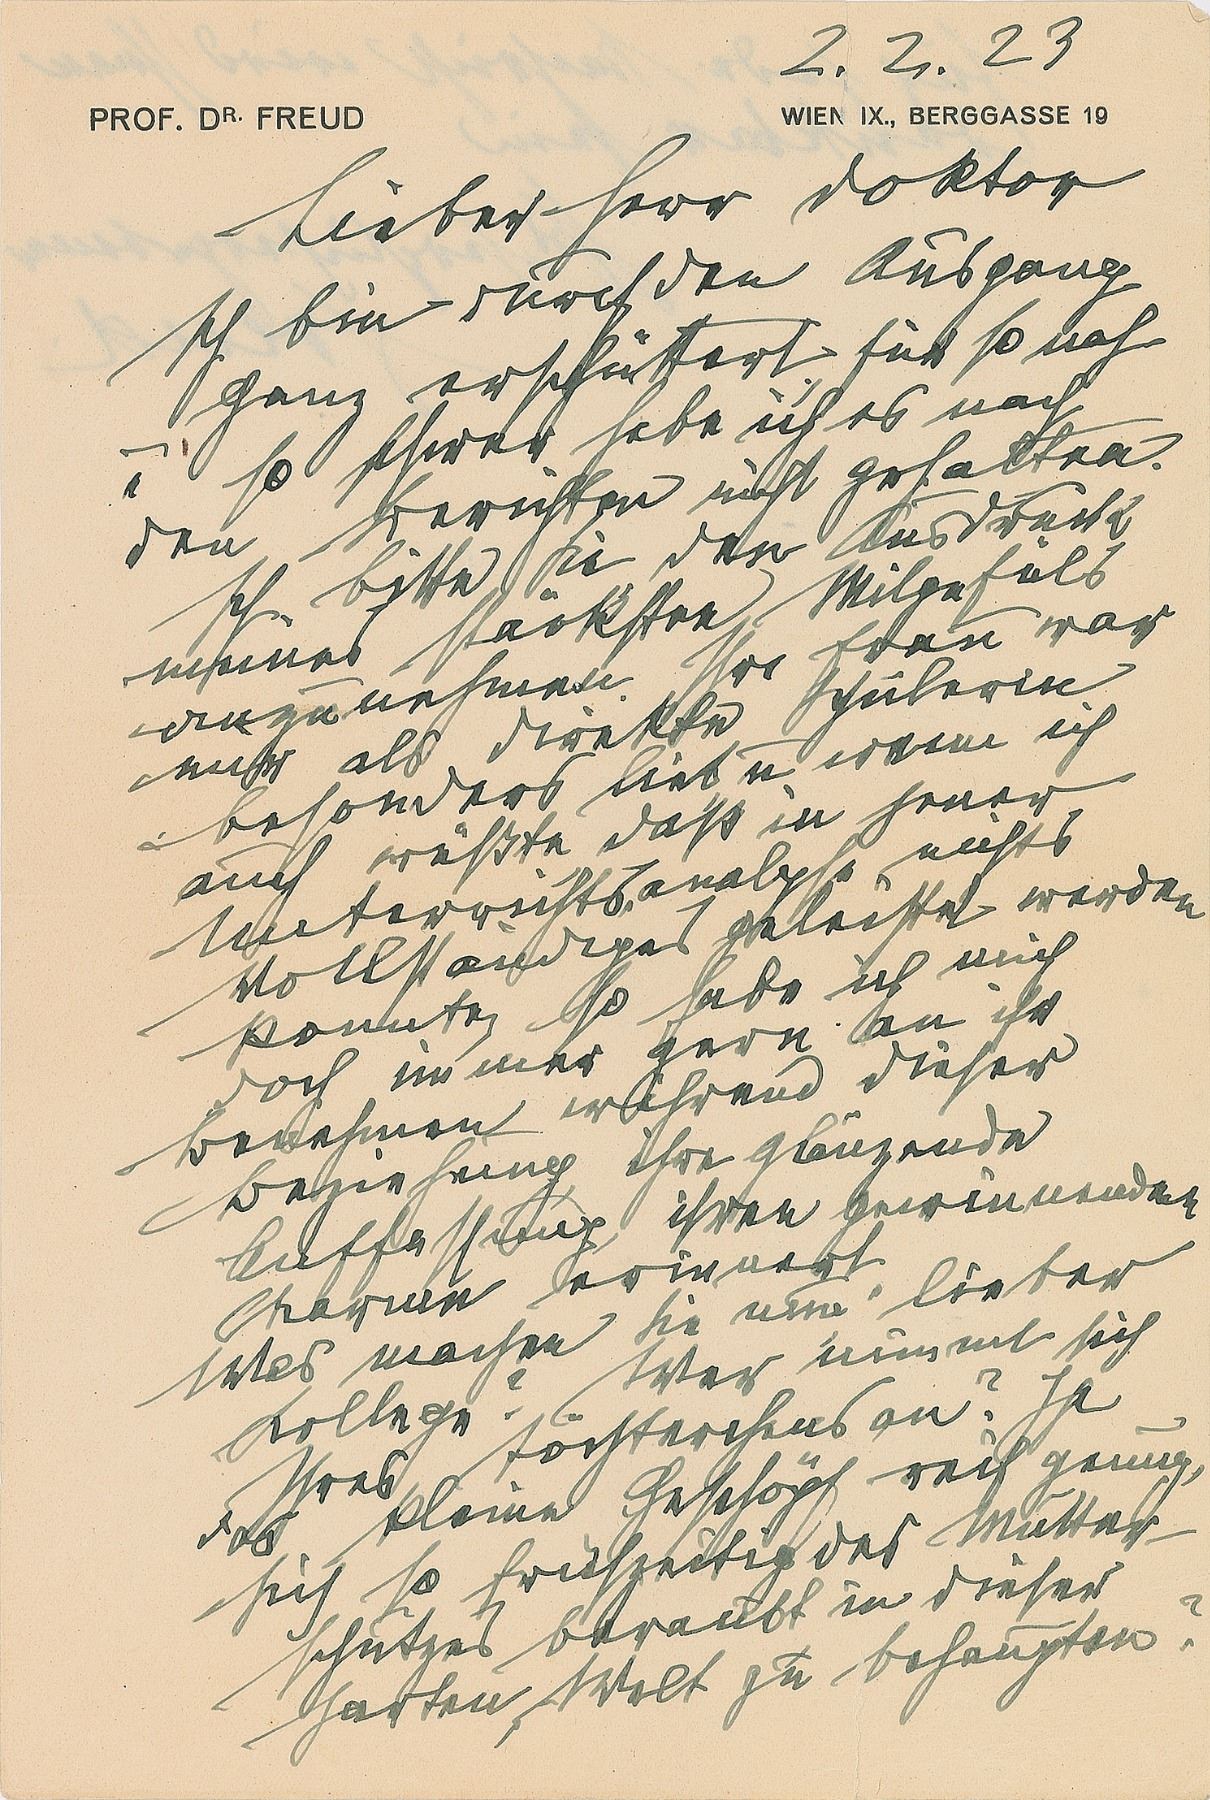 2. 2. 23
PROF. DR. FREUD
WIEN IX., BERGGASSE 19
Lieber Herr Doktor
Ich bin durch den Ausgang
ganz erschüttert für so nah
u so schwer habe ich es nach
den Berichten nicht gehalten.
Ich bitte Sie den Ausdruck
meines stärksten Mitgefüls
anzunehmen. Ihre Frau war
mir als direkte Schülerin
besonders lieb u wenn ich
auch wüßte daß in jener
Unterrichtsanalyse nichts
Vollständiges geleistet werden
konnte, so habe ich mich
doch immer gern an ihr
Benehmen während dieser
Beziehung, ihre glänzende
Auffassung, ihren gewinnenden
Charme erinnert.
Was machen Sie nun, lieber
Kollege? Wer nimmt sich
Ihres Töchterchens an? Ist
das kleine Geschöpf reif genug,
sich so frühzeitig des Mutter-
schutzes beraubt in dieser
harten Welt zu behaupten?